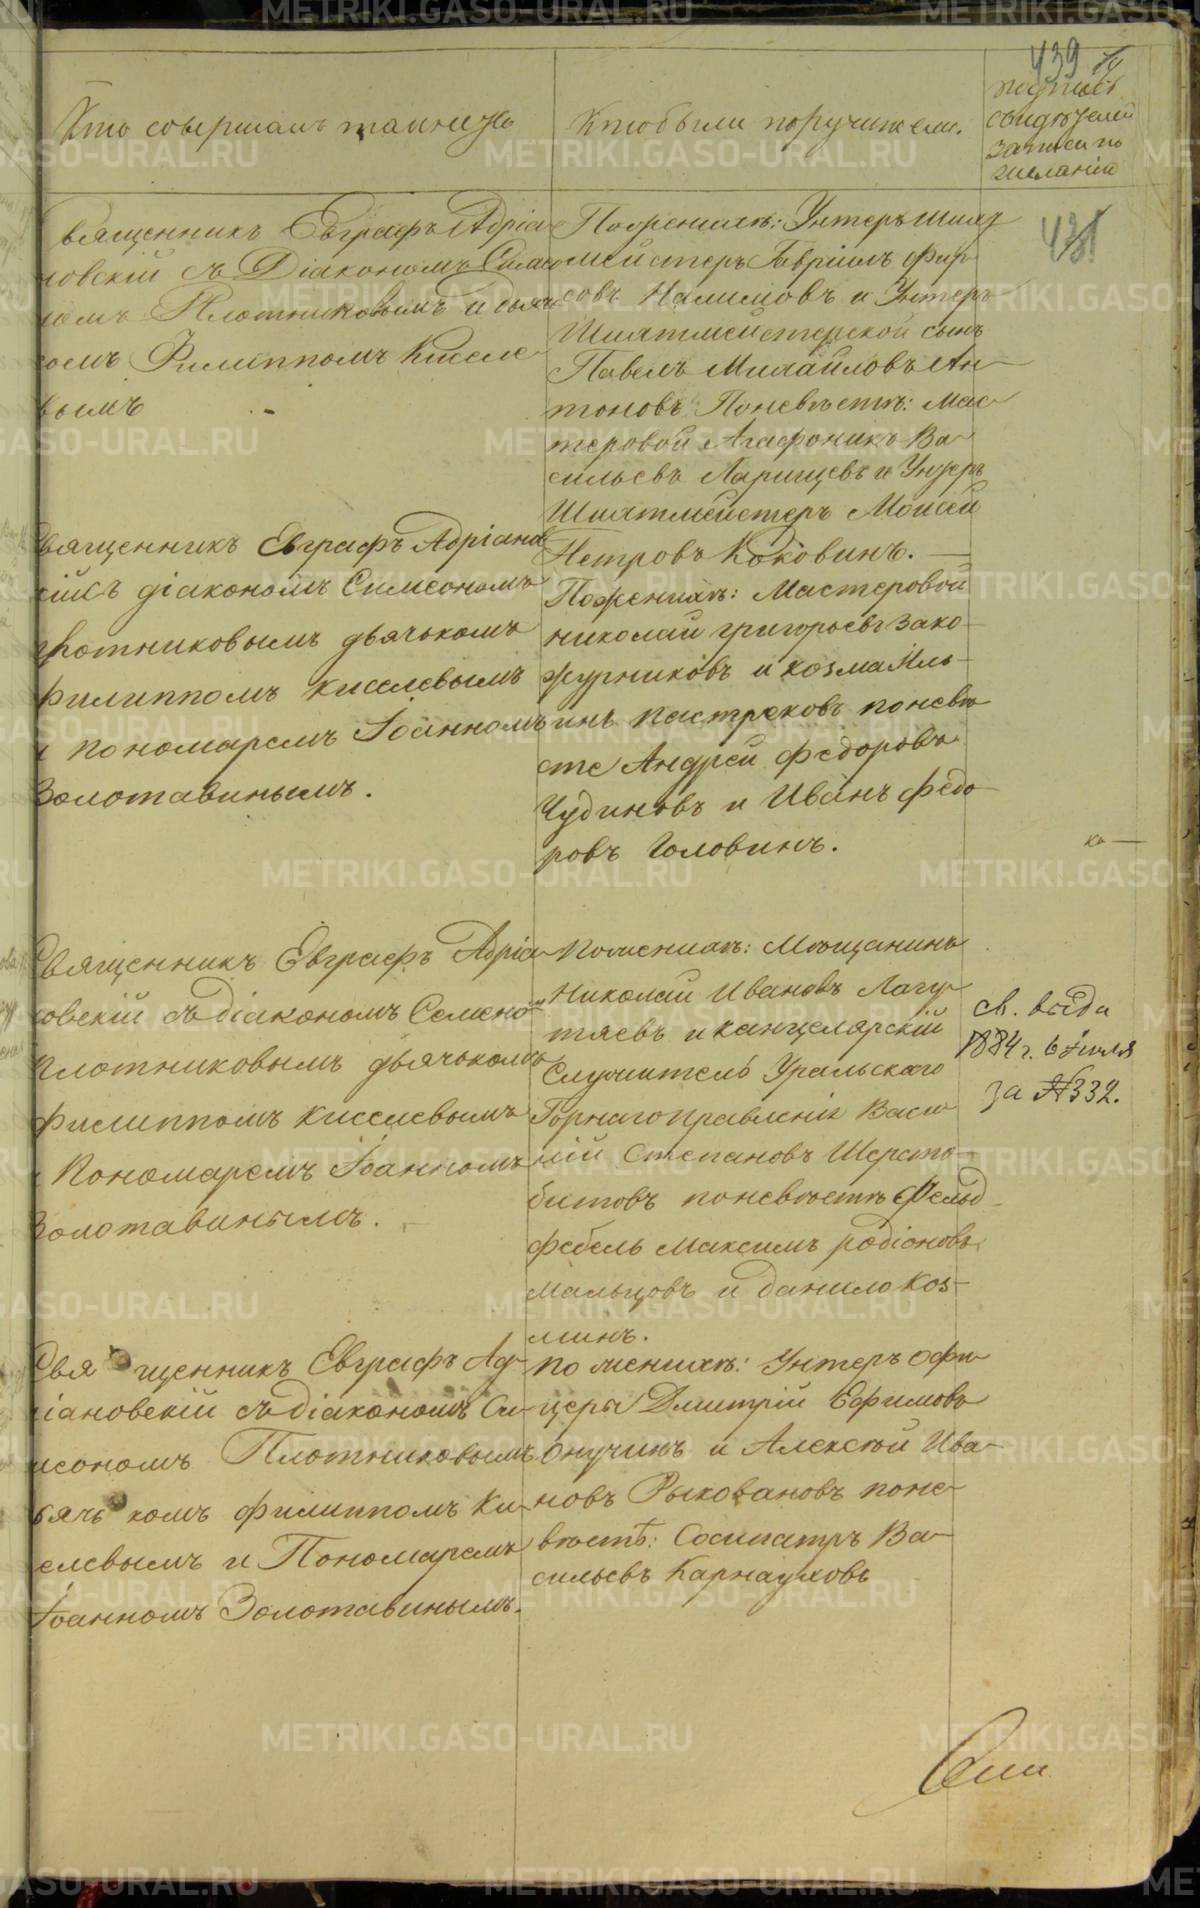 439
Кто совершалъ таинство
Кто были поручители.
подпись
свидѣтелей
записи по
желанію
431
Священникъ Евграфъ Адріа-
новскій съ Діакономъ Симео-
номъ Плотниковымъ и дьяч-
комъ Филиппомъ Киселе-
вымъ
По женихѣ: Унтеръ Шихт-
мейстеръ Гавріилъ Фир-
совъ Налимовъ и Унтеръ
Шихтмейстерской сынъ
Павелъ Михайловъ Ан-
тоновъ. По невѣстѣ: Мас-
теровой Агафоникъ Ва-
сильевъ Ларинцевъ и Унтеръ
Шихтмейстеръ Моисей
Петровъ Коковинъ.
Священникъ Евграфъ Адріанов-
скій съ діакономъ Симеономъ
Плотниковымъ дьячькомъ
Филиппомъ Киселевымъ
и пономаремъ Іоанномъ
Золотавинымъ.
По женихѣ: Мастеровой
Николай Григорьевъ Зако-
журниковъ и Козма Иль-
инъ Пастуховъ по невѣ-
сте Андрей Федоровъ
Чудиновъ и Иванъ Федо-
ровъ Головинъ.
Священникъ Евграфъ Адріа-
новскій съ діакономъ Семено-
Плотниковымъ дьячькомъ
Филиппомъ Киселевымъ
и Пономаремъ Іоанномъ
Золотавинымъ.
По женихѣ: Мѣщанинъ
Николай Ивановъ Лагу-
тяевъ и канцелярскій
Служитель Уральскаго
Горнаго Правленія Васи-
лій Степановъ Шерсто-
битовъ по невѣстѣ Фельд-
фебель Максимъ Родіоновъ
Мальцовъ и Данило Коз-
минъ.
св. выда
1884 г. 6 Іюля
за №332.
Священникъ Евграфъ Ад-
ріановскій съ діакономъ Си-
меономъ Плотниковымъ
дьячькомъ Филиппомъ Ки-
селевымъ и Пономаремъ
Іоанномъ Золотавинымъ.
По женихѣ: Унтеръ офи-
церы Дмитрій Ефимовъ
Онучинъ и Алексѣй Ива-
новъ Рыковановъ по не-
вѣстѣ: Сосипатръ Ва-
сильевъ Карнауховъ
METRIKI.GASO-URAL.RU